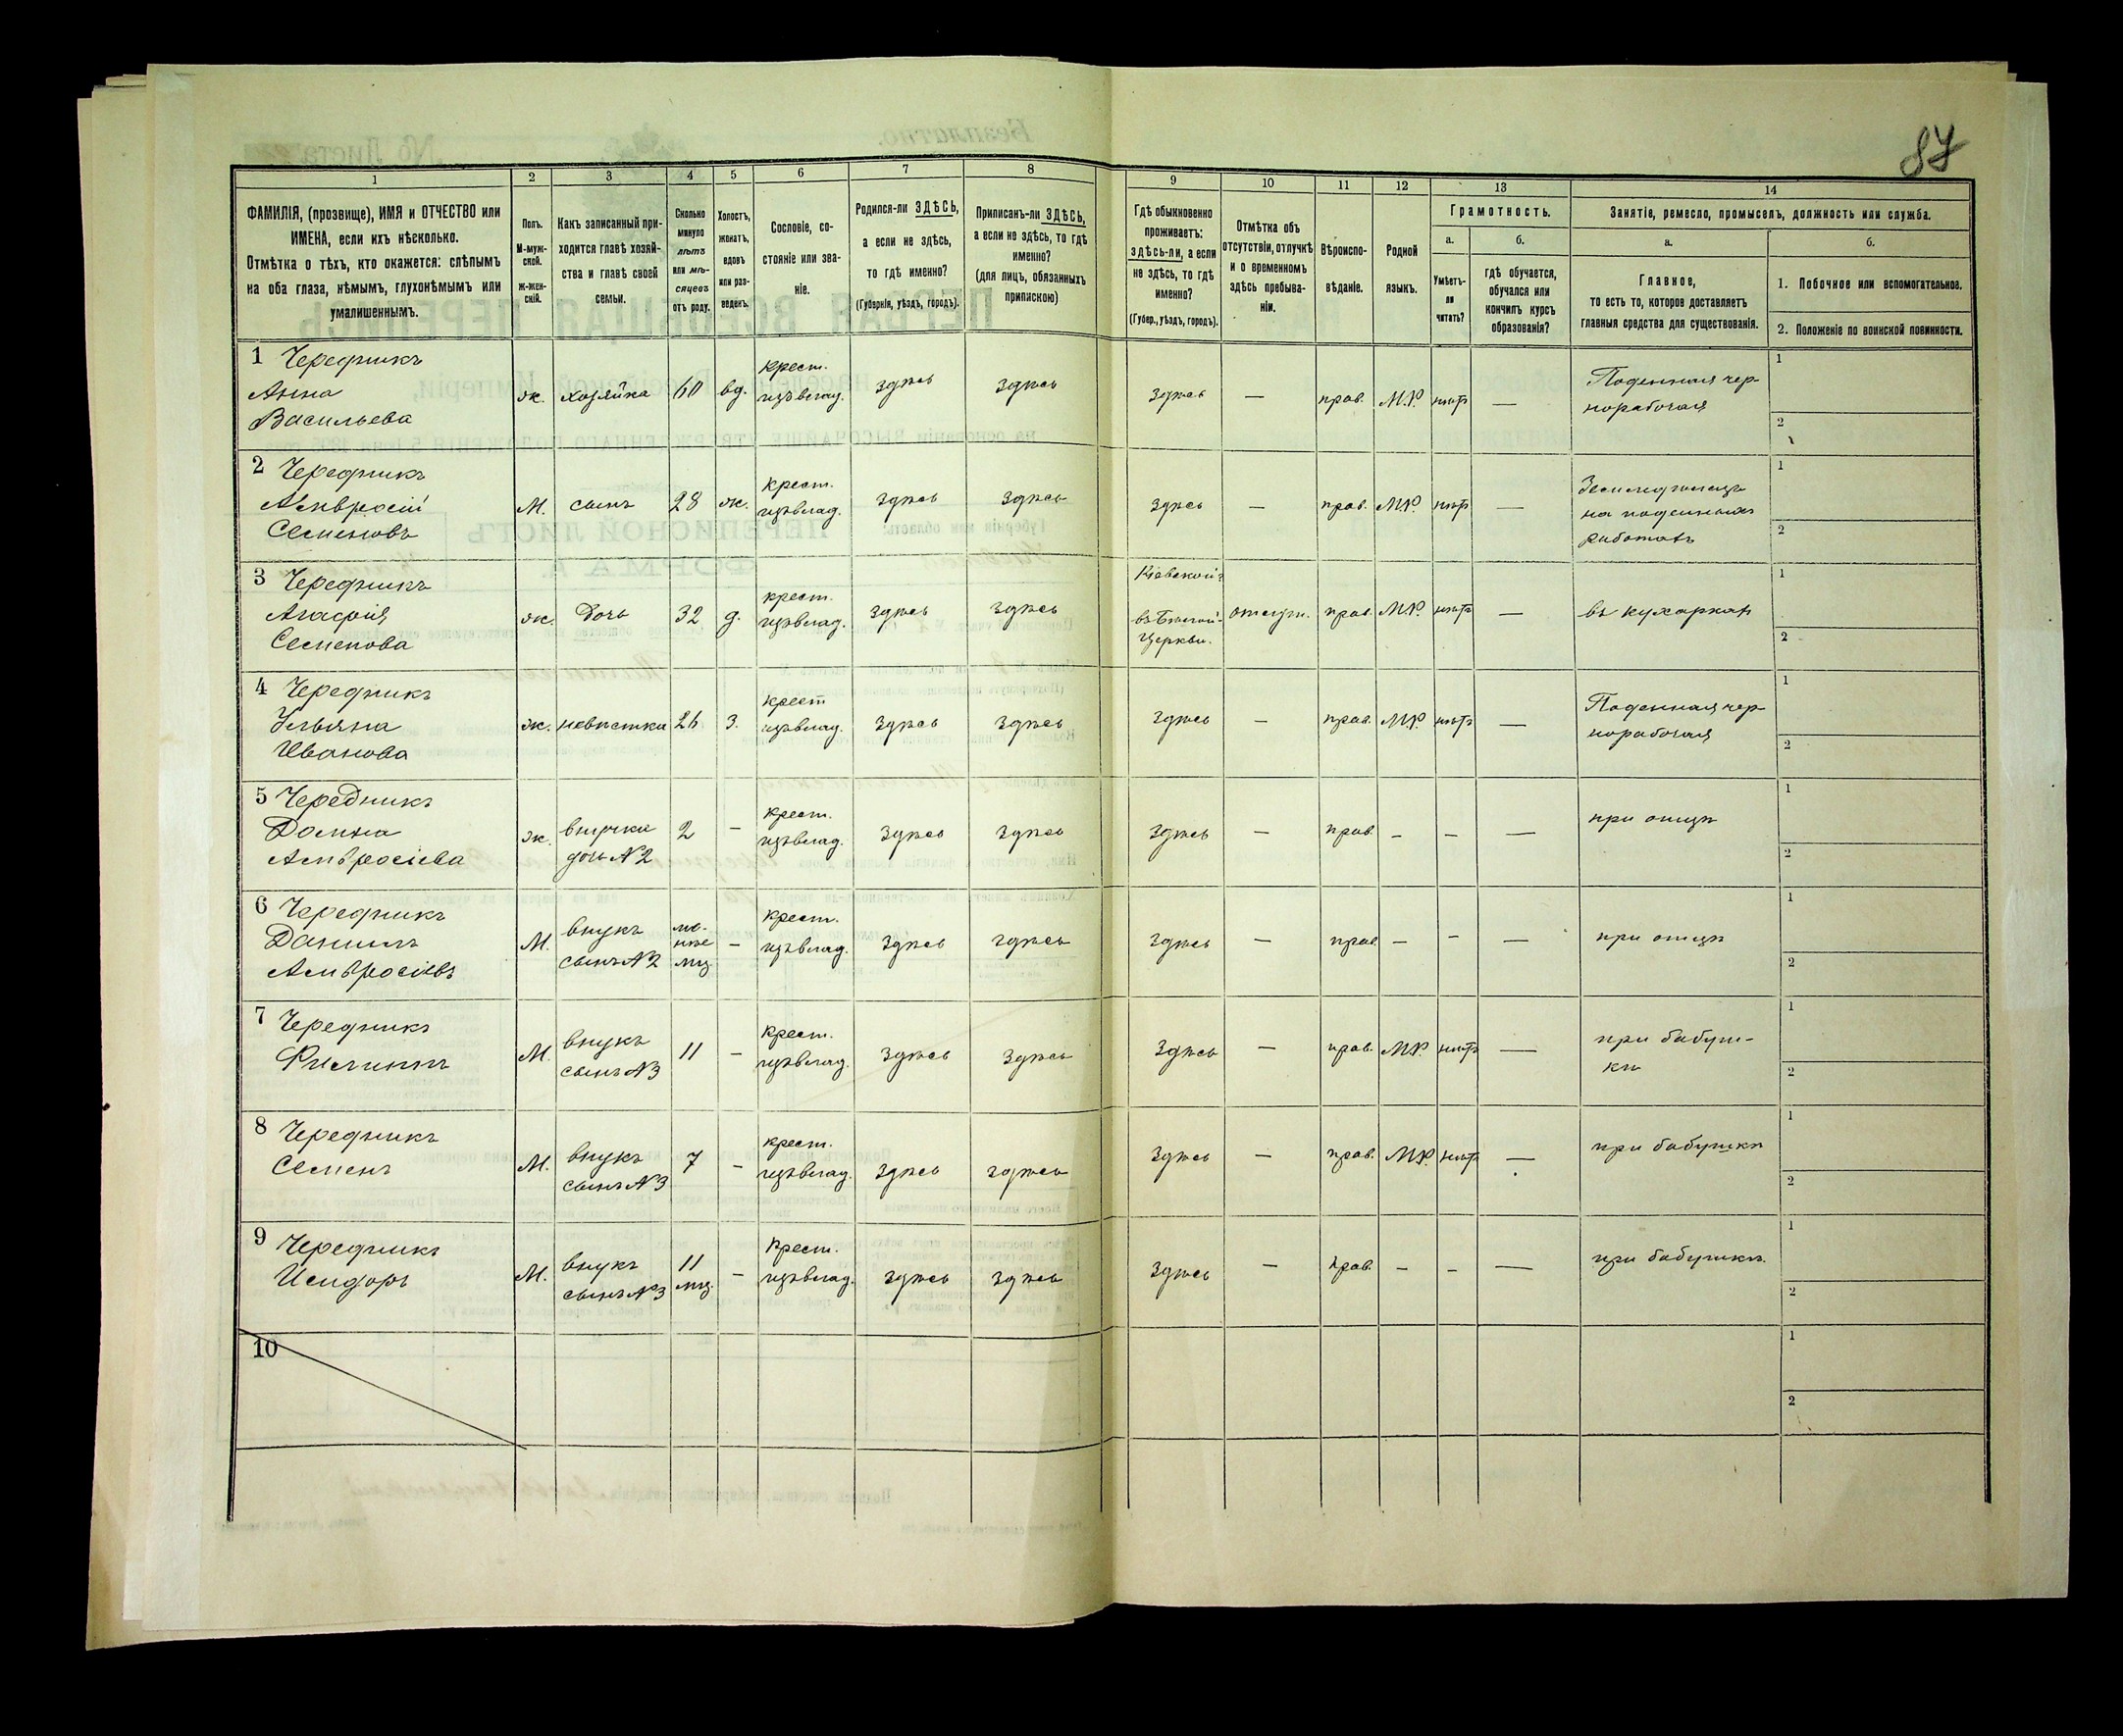 87
1 2 3 4 5 6 7 8 9 10 11 12 13 14
ФАМИЛІЯ, (прозвище), ИМЯ и ОТЧЕСТВО или
ИМЕНА, если ихъ нѣсколько.
Отмѣтка о тѣхъ, кто окажется: слѣпымъ
на оба глаза, нѣмымъ, глухонѣмымъ или
умалишеннымъ.
Полъ.
М-муж-
ской.
Ж-жен-
скій.
Какъ записанный при-
ходится главѣ хозяй-
ства и главѣ своей
семьи.
Сколько
минуло
лѣтъ
или мѣ-
сяцевъ
отъ роду.
Холостъ,
женатъ,
вдовъ
или раз-
веденъ.
Сословіе, со-
стояніе или зва-
ніе.
Родился-ли ЗДѢСЬ,
а если не здѣсь,
то гдѣ именно?
(Губернія, уѣздъ, городъ).
Приписанъ-ли ЗДѢСЬ,
а если не здѣсь, то гдѣ
именно?
(для лицъ, обязанныхъ
припискою)
Гдѣ обыкновенно
проживаетъ:
здѣсь-ли, а если
не здѣсь, то гдѣ
именно?
(Губер., уѣздъ, городъ).
Отмѣтка объ
отсутствіи, отлучкѣ
и о временномъ
здѣсь пребыва-
ніи.
Вѣроиспо-
вѣданіе.
Родной
языкъ.
Грамотность.
а.
Умѣетъ-
ли
читать?
б.
гдѣ обучается,
обучался или
кончилъ курсъ
образованія?
Занятіе, ремесло, промыселъ, должность или служба.
а.
Главное,
то есть то, которое доставляетъ
главныя средства для существованія.
б.
1. Побочное или вспомогательное.
2. Положеніе по воинской повинности.
1 Чередникъ
Анна
Васильева
ж. хозяйка 60 вд. крест.
изъ влад. здѣсь здѣсь здѣсь — прав. М.Р. нѣтъ — Поденная чер-
норабочая
1
2
2 Чередникъ
Амвросій
Семеновъ
М. сынъ 28 ж. крест.
изъ влад. здѣсь здѣсь здѣсь — прав. М.Р. нѣтъ —
на поденныхъ
работахъ
1
2
3 Чередникъ
Агафія
Семенова
ж. Дочь 32 д. крест.
изъ влад. здѣсь здѣсь Кіевской г.
въ Бѣлой-
Церкви. отсут. прав. М.Р. нѣтъ — въ кухаркахъ
1
2
4 Чередникъ
Ульяна
Иванова
ж. невѣстка 26 з. крест
изъ влад. здѣсь здѣсь здѣсь — прав. М.Р. нѣтъ — Поденная чер-
норабочая
1
2
5 Чередникъ
Домна
Амвросіева
ж. внучка
дочь №2 2 — крест.
изъ влад. здѣсь здѣсь здѣсь — прав. — — — при отцѣ
1
2
6 Чередникъ
Даниилъ
Амвросіевъ
М. внукъ
сынъ №2 ме-
нѣе
мц. — крест.
изъ влад. здѣсь здѣсь здѣсь — прав. — — — при отцѣ
1
2
7 Чередникъ
Филиппъ
М. внукъ
сынъ №3 11 — крест.
изъ влад. здѣсь здѣсь здѣсь — прав. М.Р. нѣтъ — при бабуш-
кѣ
1
2
8 Чередникъ
Семенъ
М. внукъ
сынъ №3 7 — крест.
изъ влад. здѣсь здѣсь здѣсь — прав. М.Р. нѣтъ — при бабушкѣ
1
2
9 Чередникъ
Исидоръ
М. внукъ
сынъ №3 11
мц. — крест.
изъ влад. здѣсь здѣсь здѣсь — прав. — — — при бабушкѣ.
1
2
10
1
2